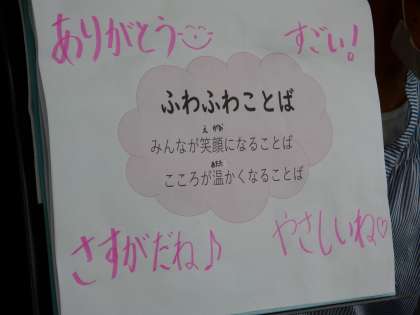 ありがとう
すごい!
ふわふわことば
みんなが笑顔になることば
こころが温かくなることば
さすがだね♪
やさしいね♡